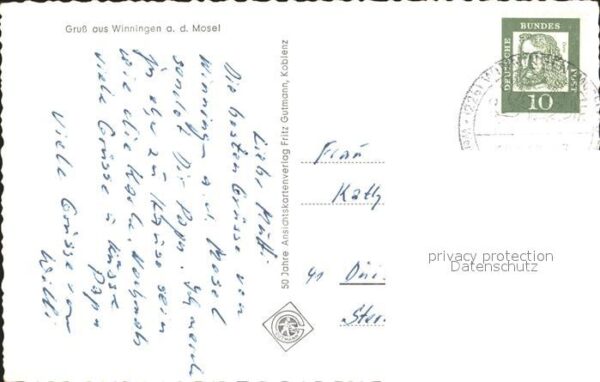 Gruß aus Winningen a. d. Mosel
Liebe Mutti
Die besten Grüsse von
Winningen a. d. Mosel
sendet Dir Papa.
In oder zu Hause sein
wie die Karte. Nochmals
viele Grüsse u Küsse
Papa
Viele Grüsse von
Willi
50 Jahre Ansichtskartenverlag Fritz Gutmann, Koblenz
DEUTSCHE
BUNDES
POST
10
Frau
Käth
41 Dui
Ster.
privacy protection
Datenschutz